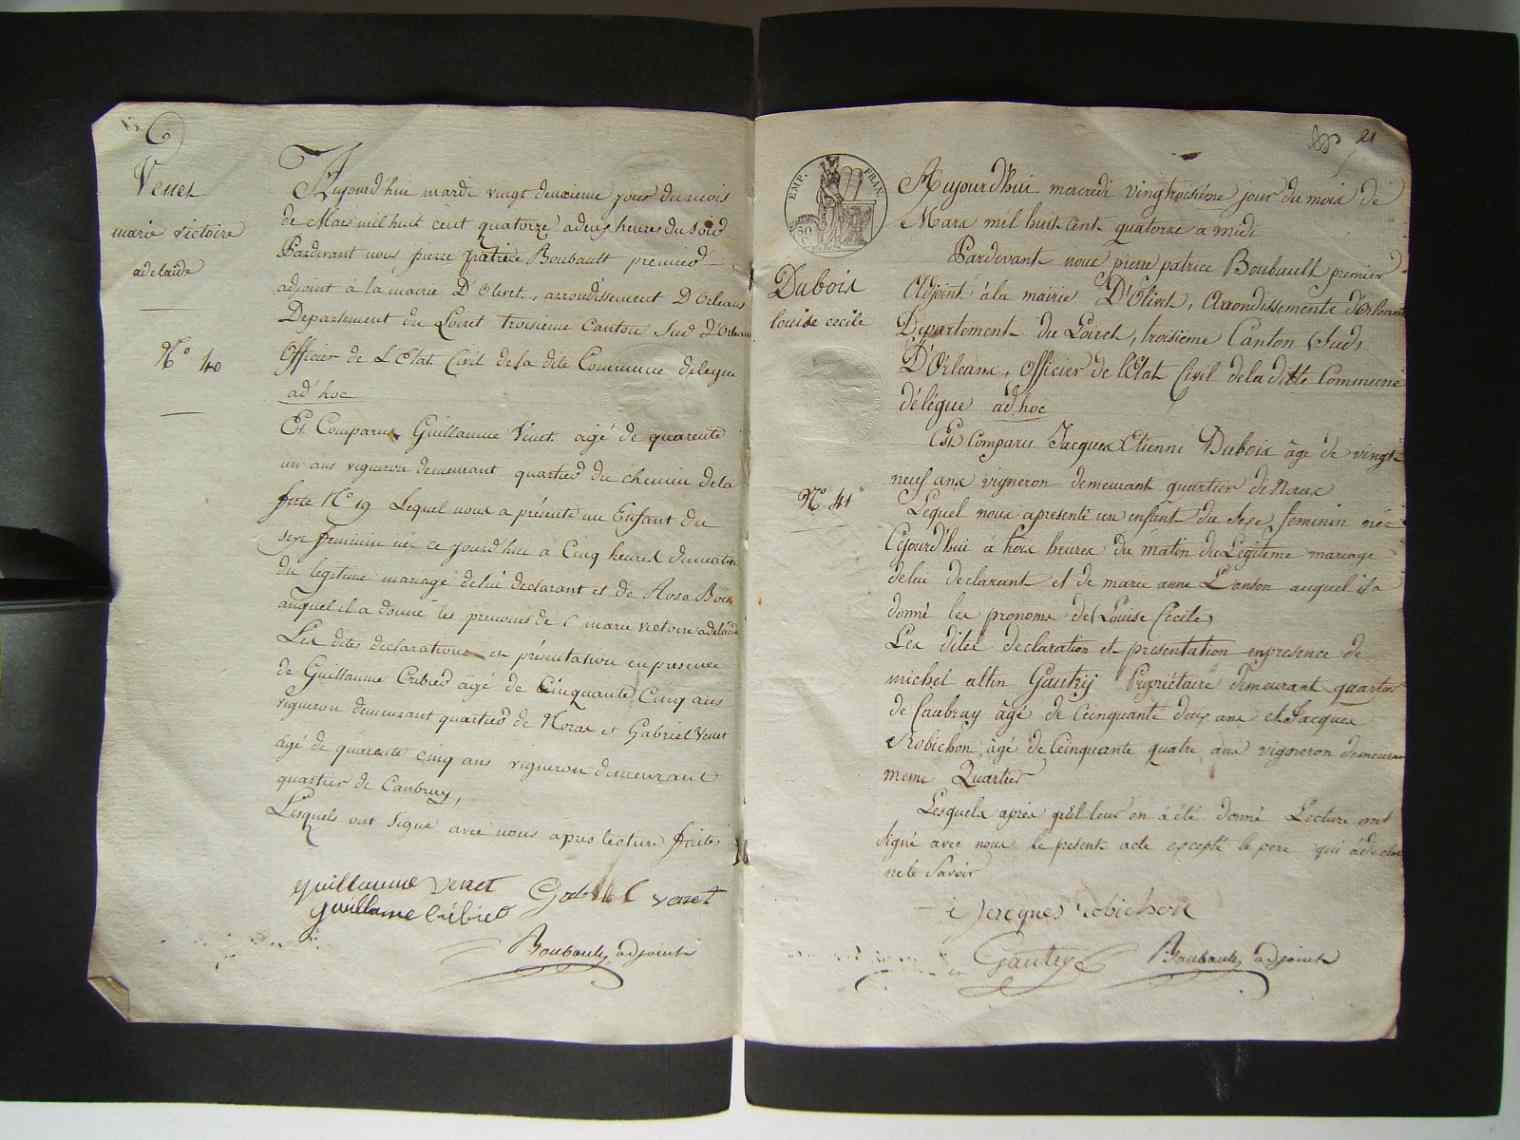 Venet
marie victoire
adelaide
N.° 40
Aujourd'hui mardi vingt deuxieme jour du mois
de Mars mil huit cent quatorze a deux heures du soir
Pardevant nous pierre patrice Boubault premier
adjoint à la mairie D'Olivet, arrondissement D'Orleans
Departement du Loiret troisieme Canton Sud D'Orleans
Officier de L'Etat Civil de la dite Commune delegue
ad'hoc
Est Comparu Guillaume Venet agé de quarente
un ans vigneron demeurant quartier du chemin de la
ferte N.° 19 Lequel nous a présenté un Enfant du
sexe feminin né ce jourd'hui à Cinq heures du matin
du legitime mariage de lui declarant et de Rose
auquel il a donné les prenoms de marie victoire adelaide
Les dites declaration et présentation en presence
de Guillaume Cribier agé de Cinquante Cinq ans
vigneron demeurant quartier de Noras et Gabriel Venet
âgé de quarente cinq ans vigneron demeurant
quartier de Caubray,
Lesquels ont signé avec nous apres lecture faite
guillaume venet Gabriel venet
guillaume Cribier
Boubault, adjoint
21
EMP. FRAN.
Dubois
louise cecile
N.° 41
Aujourd'hui mercredi vingtroisième jour du mois de
Mars mil huit Cent quatorze a midi
Pardevant nous pierre patrice Boubault premier
Adjoint à la mairie D'Olivet, Arrondissemente d'Orleans
Departement du Loiret, troisieme Canton Sud,
D'Orleans, officier de l'Etat Civil de la ditte Commune
délégue ad hoc
Est Comparu Jacques Etienne Dubois âge de vingt
neuf ans vigneron demeurant quartier de Noras
Lequel nous a presenté un enfant du sexe feminin née
Cejourd'hui à trois heures du matin du Légitime mariage
de lui declarant et de marie anne Lanson auquel il a
donné les pronoms de Louise Cécile,
Les dites declaration et presentation en presence de
michel altin Gautry Propriétaire demeurant quartier
de Caubray âgé de Cinquante deux ans et Jacques
Robichon âgé de Cinquante quatre ans vigneron demeurant
meme Quartier
Lesquels après qu'il leur en à été donné Lecture ont
signé avec nous le present acte excepté le pere qui à declaré
ne le Savoir
Jacques robichon
Gautry Boubault, adjoint